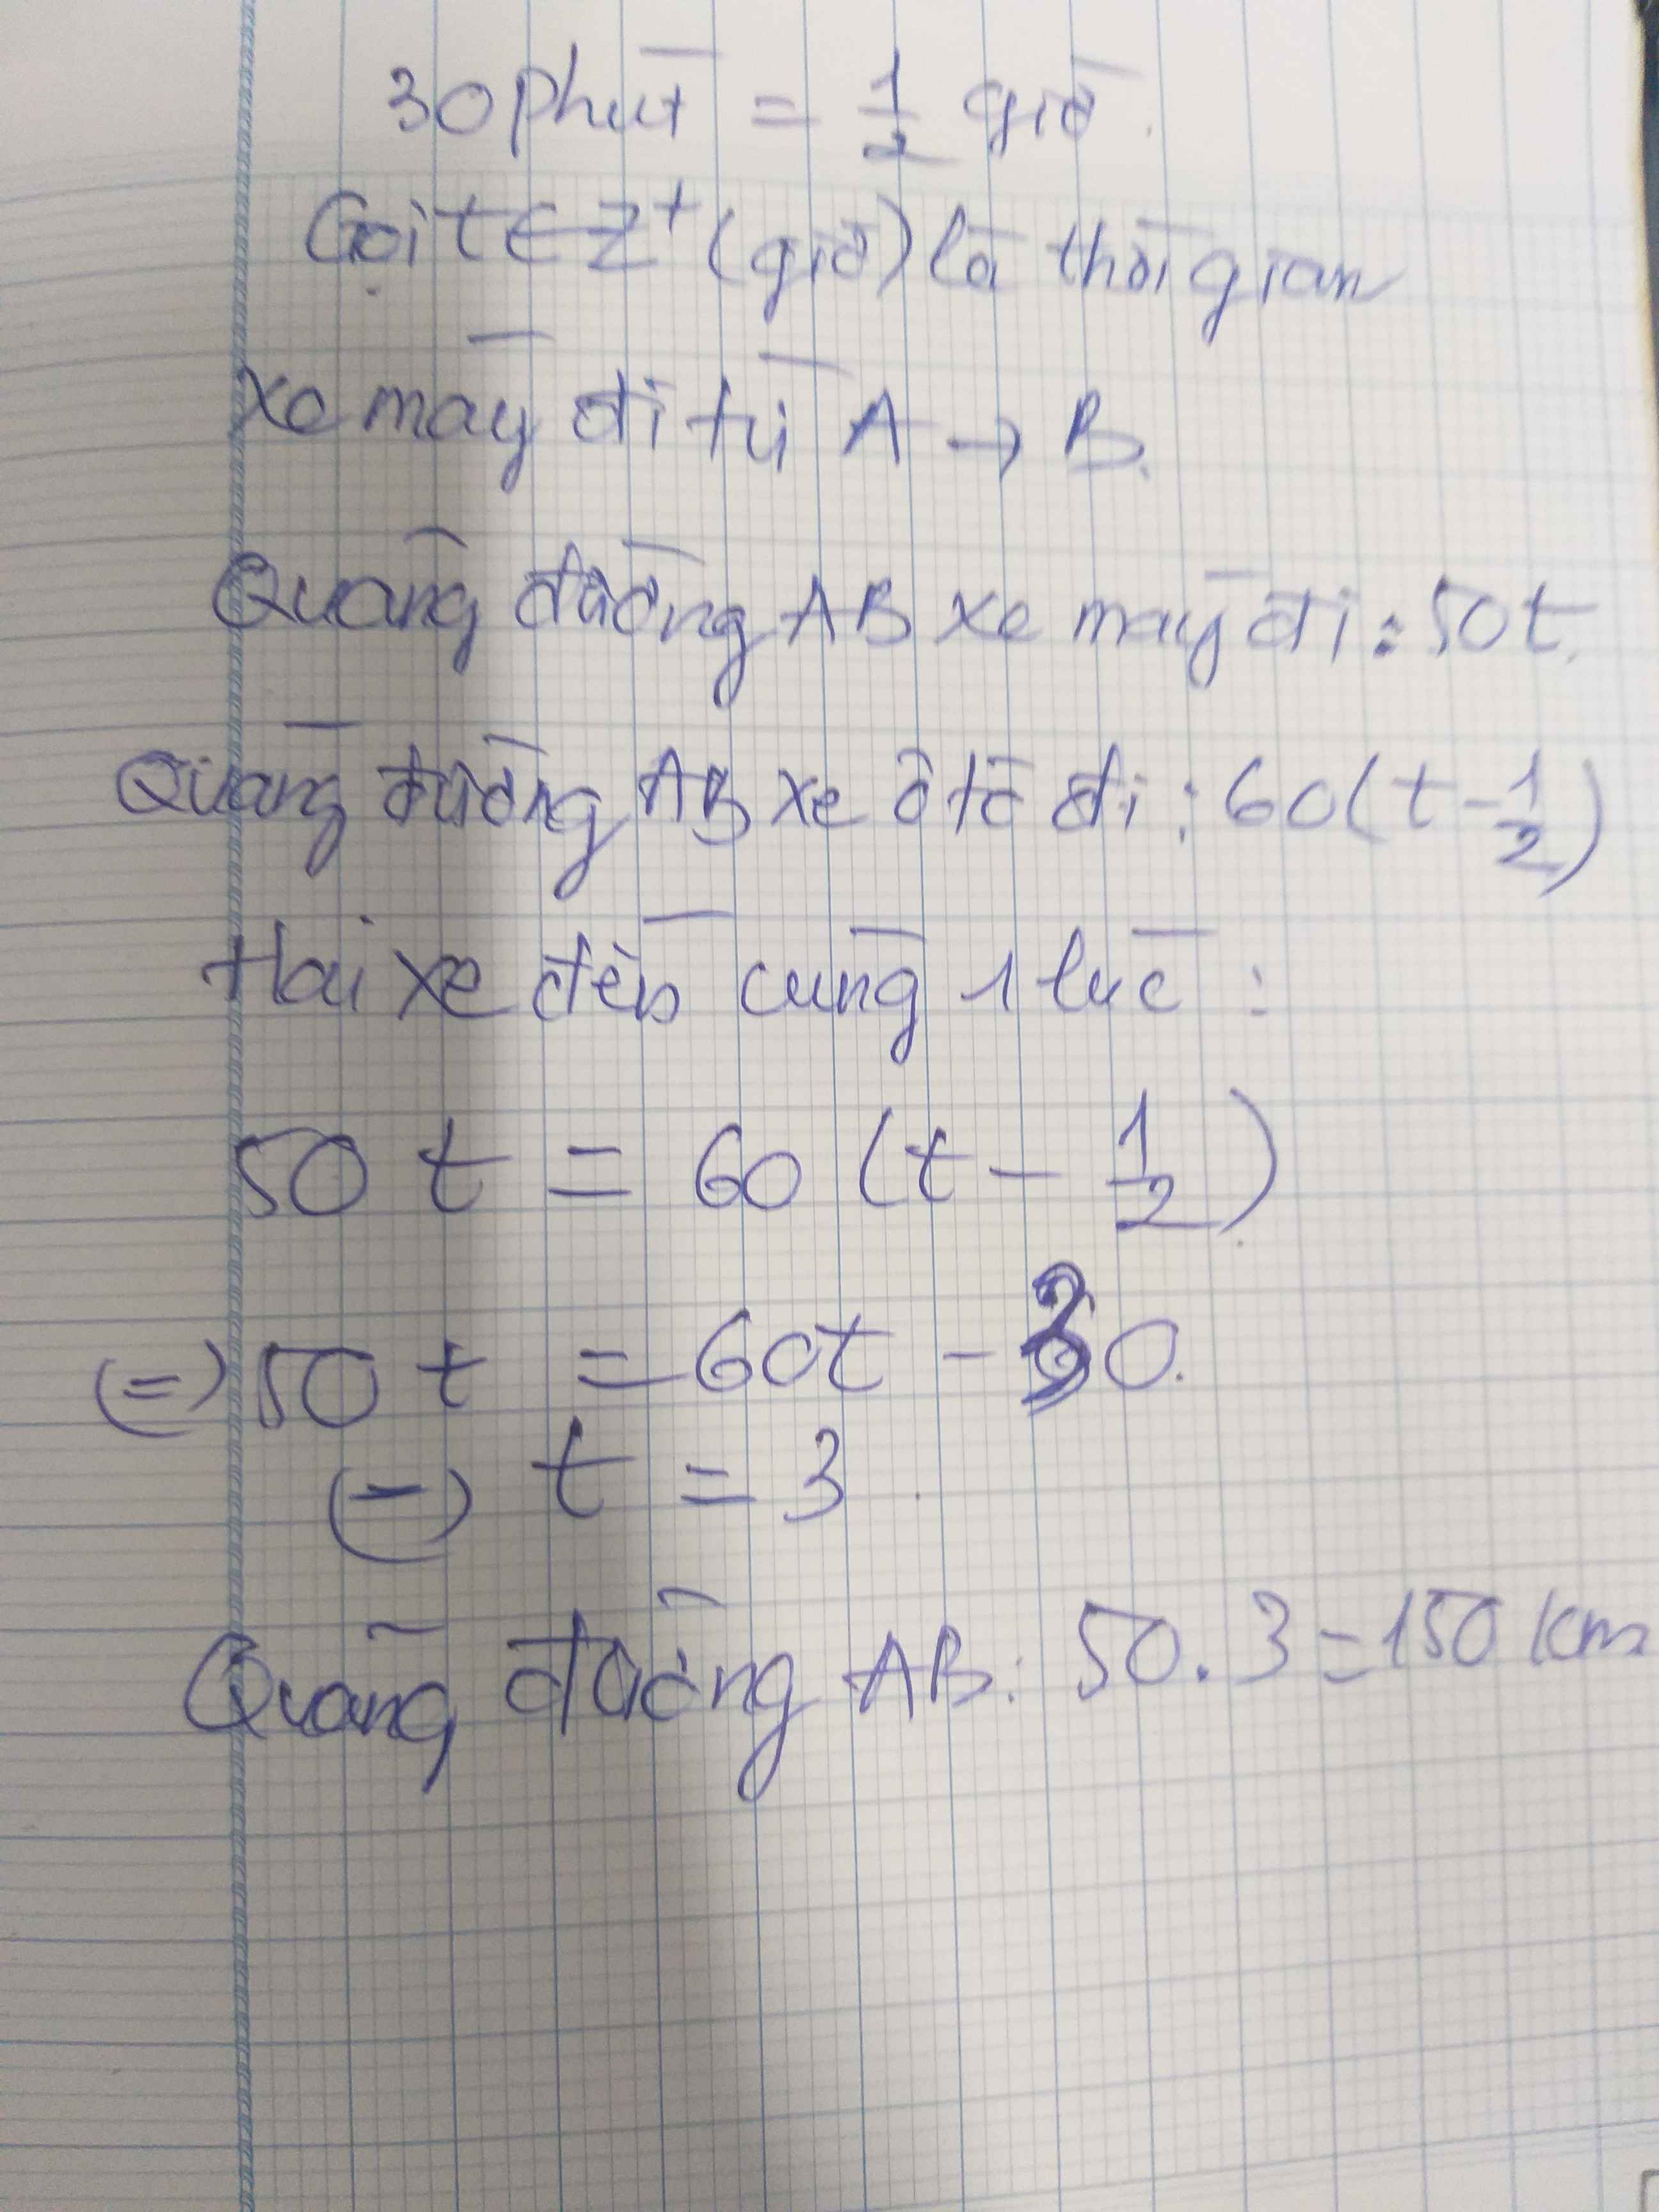 30 phút = 1/2 giờ.
Gọi t ∈ Z⁺ (giờ) là thời gian
xe máy đi từ A → B.
Quãng đường AB xe máy đi: 50t.
Quãng đường AB xe ô tô đi: 60(t - 1/2)
Hai xe đến cùng 1 lúc:
50t = 60(t - 1/2)
(=) 50t = 60t - 30.
(=) t = 3.
Quãng đường AB: 50.3 = 150 km